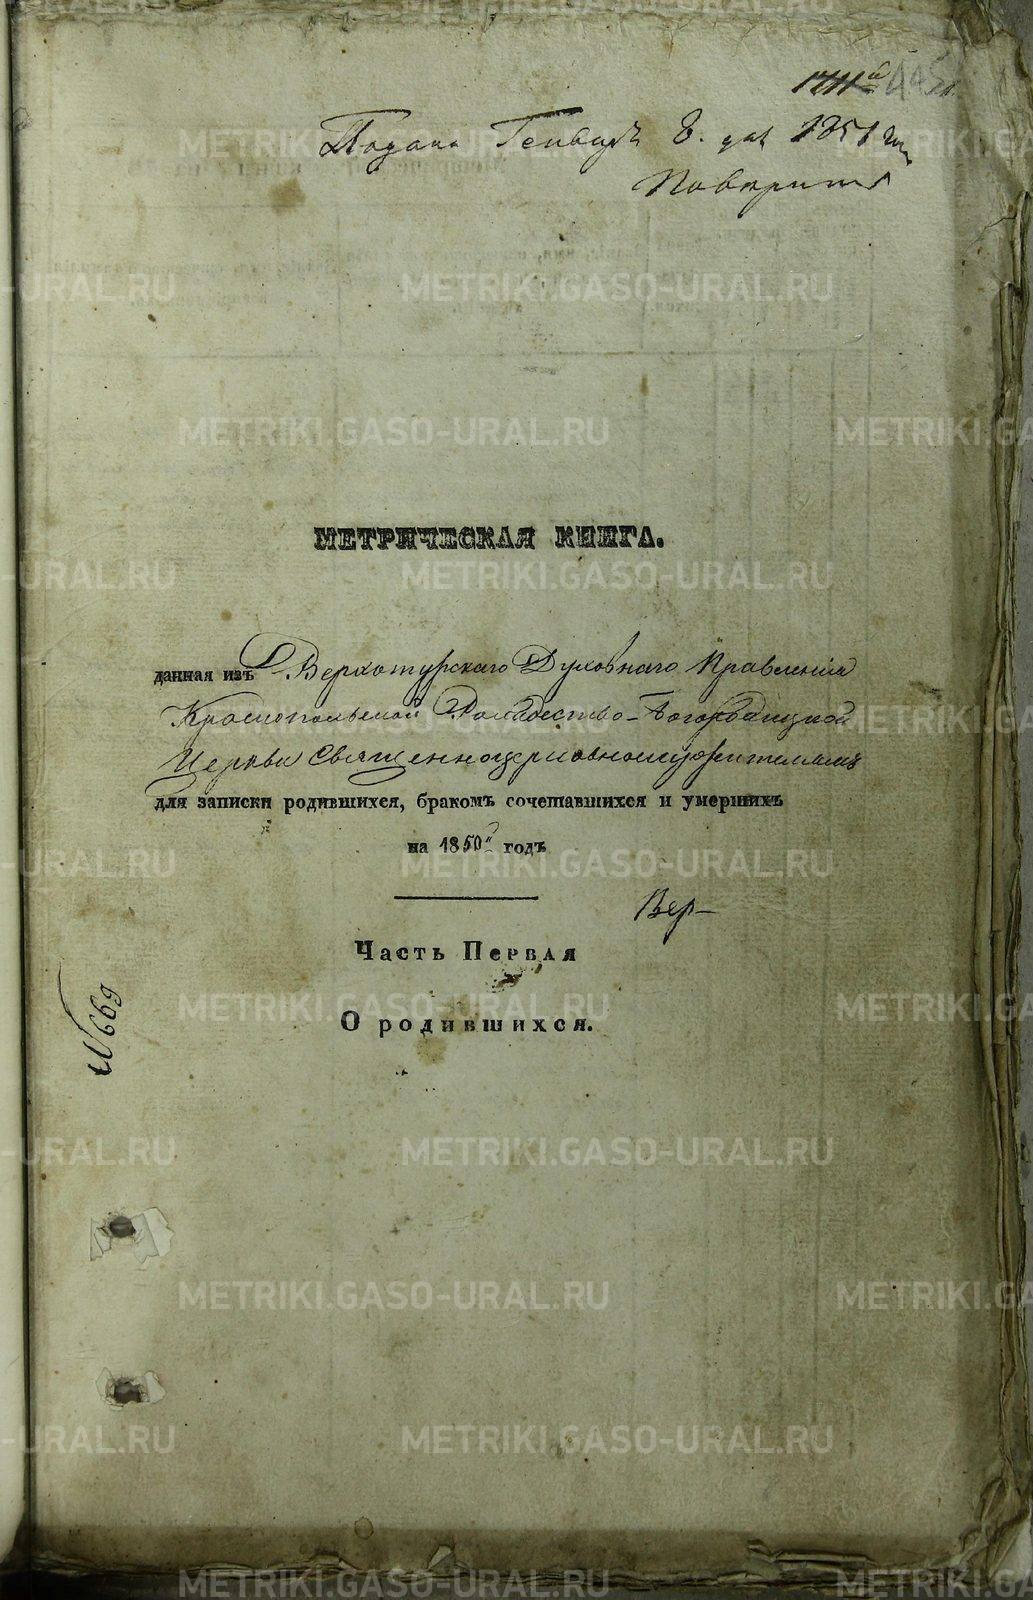 1711й 445
Подана Генваря 8. дня 1851 года
МЕТРИЧЕСКАЯ КНИГА.
данная изъ Верхотурскаго Духовнаго Правления
Краснопольской Рождество-Богородицкой
Церкви Священноцерковнослужителямъ
для записки родившихся, бракомъ сочетавшихся и умершихъ
на 1850й годъ
Вер-
Часть Первая
О родившихся.
№669
METRIKI.GASO-URAL.RU